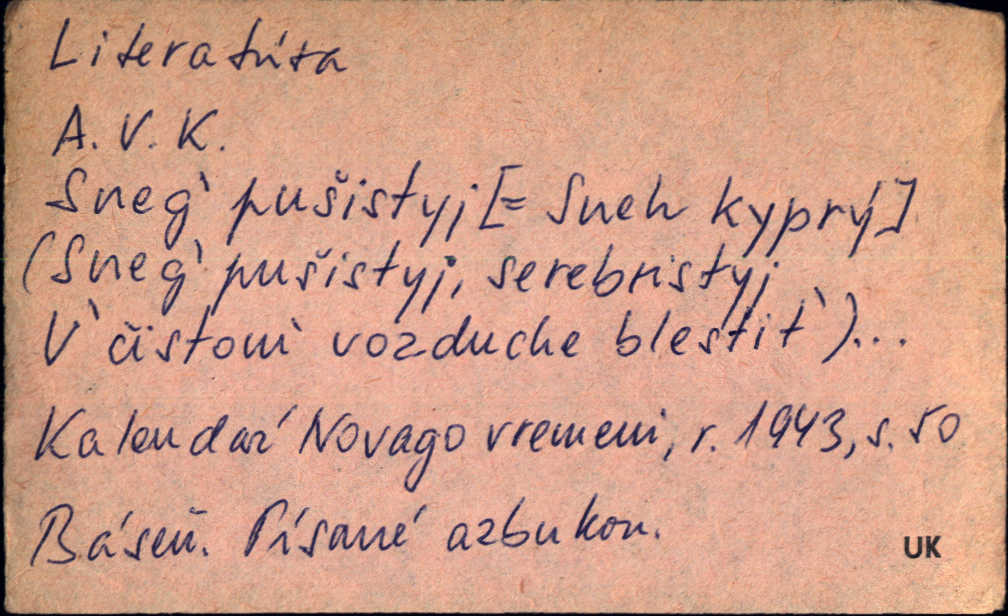 Literatúra
A. V. K.
Sneg` pušistyj [= Sneh kyprý]
(Sneg` pušistyj, serebristyj
V` čistom` vozduche blestit`)...
Kalendaŕ Novago vremeni, r. 1943, s. 50
Báseň. Písané azbukou.
UK